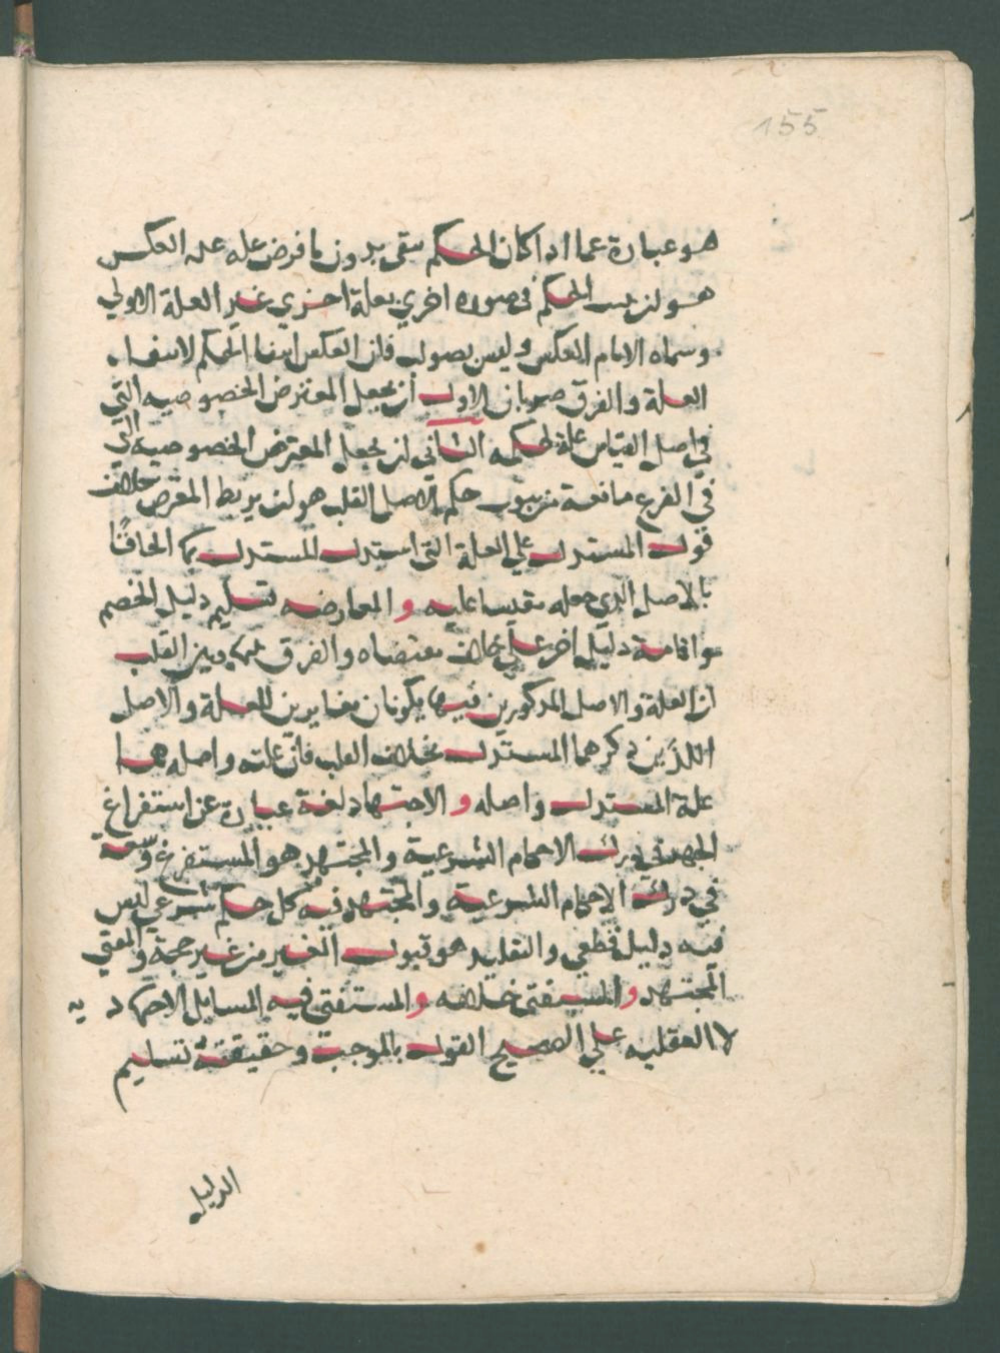 155
هو عبارة عما اذا كان الحكم بقى بدون ما فرض عله عله العكس
هو ان يثبت الحكم في صوره اخري بعلة اخري غير العلة الاولي
وسماه الامام العكس وليس بصواب فان العكس انتفا الحكم لانتفاء
العلة والفرق ضربان الاول أن يجعل المعترض الخصوصيه التي
في اصل القياس علة لحكمه الثاني ان يجعل المعترض الخصوصية التي
في الفرع مانعة من ثبوت حكم الاصل القلب هو ان يربط المعترض خلاف
قول المستدل علي العلة التي استدل المستدل بها الحاقًا
بالاصل الذي جعله مقيسا عليه و المعارضه تسليم دليل الخصم
واقامة دليل اخر علي خلاف مقتضاه والفرق بينها وبين القلب
ان العلة والاصل المذكورين فيها يكونان مغايرين للعلة والاصل
اللذين ذكرهما المستدل بخلاف القلب فان علته واصله هما
علة المستدل واصله و الاجتهاد لغة عبارة عن استفراغ
الجهد في درك الاحكام الشرعية والمجتهد هو المستفرغ وسعه
في درك الاحكام الشرعية والمجتهد فيه كل حكم شرعي ليس
فيه دليل قطعي والتقليد هو قبول الغير من غير حجة والمفتي
المجتهد و المستفتى خلافه و المستفتى فيه المسايل الاجتهادية
لا العقليه علي الصحيح القول بالموجب وحقيقته تسليم
الدليل